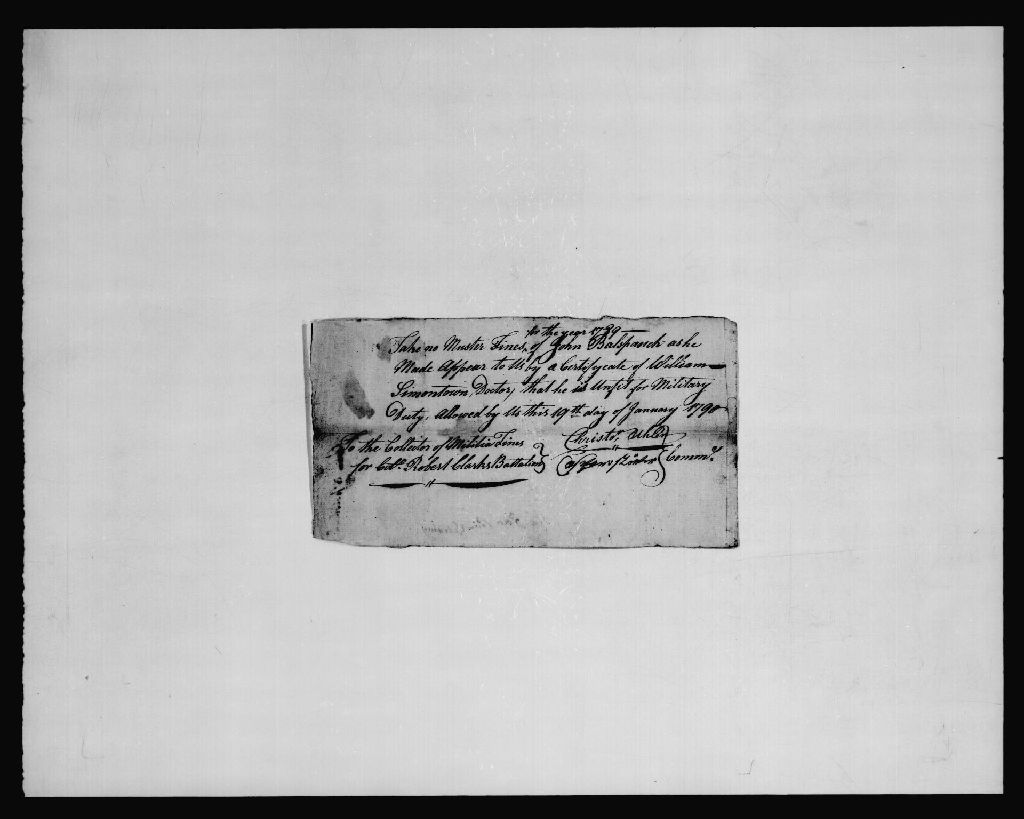 for the year 1789
Take no Muster Fines, of John Balspaach as he
Made Appear to Us by a Certifycate of William
Simontown, Doctor, that he is Unfit for Military
Duty. allowed by Us this 19th day of January 1790
To the Collector of Militia Fines
for Coll. Robert Clarks Battalion
Christor. Uhler
Comms.